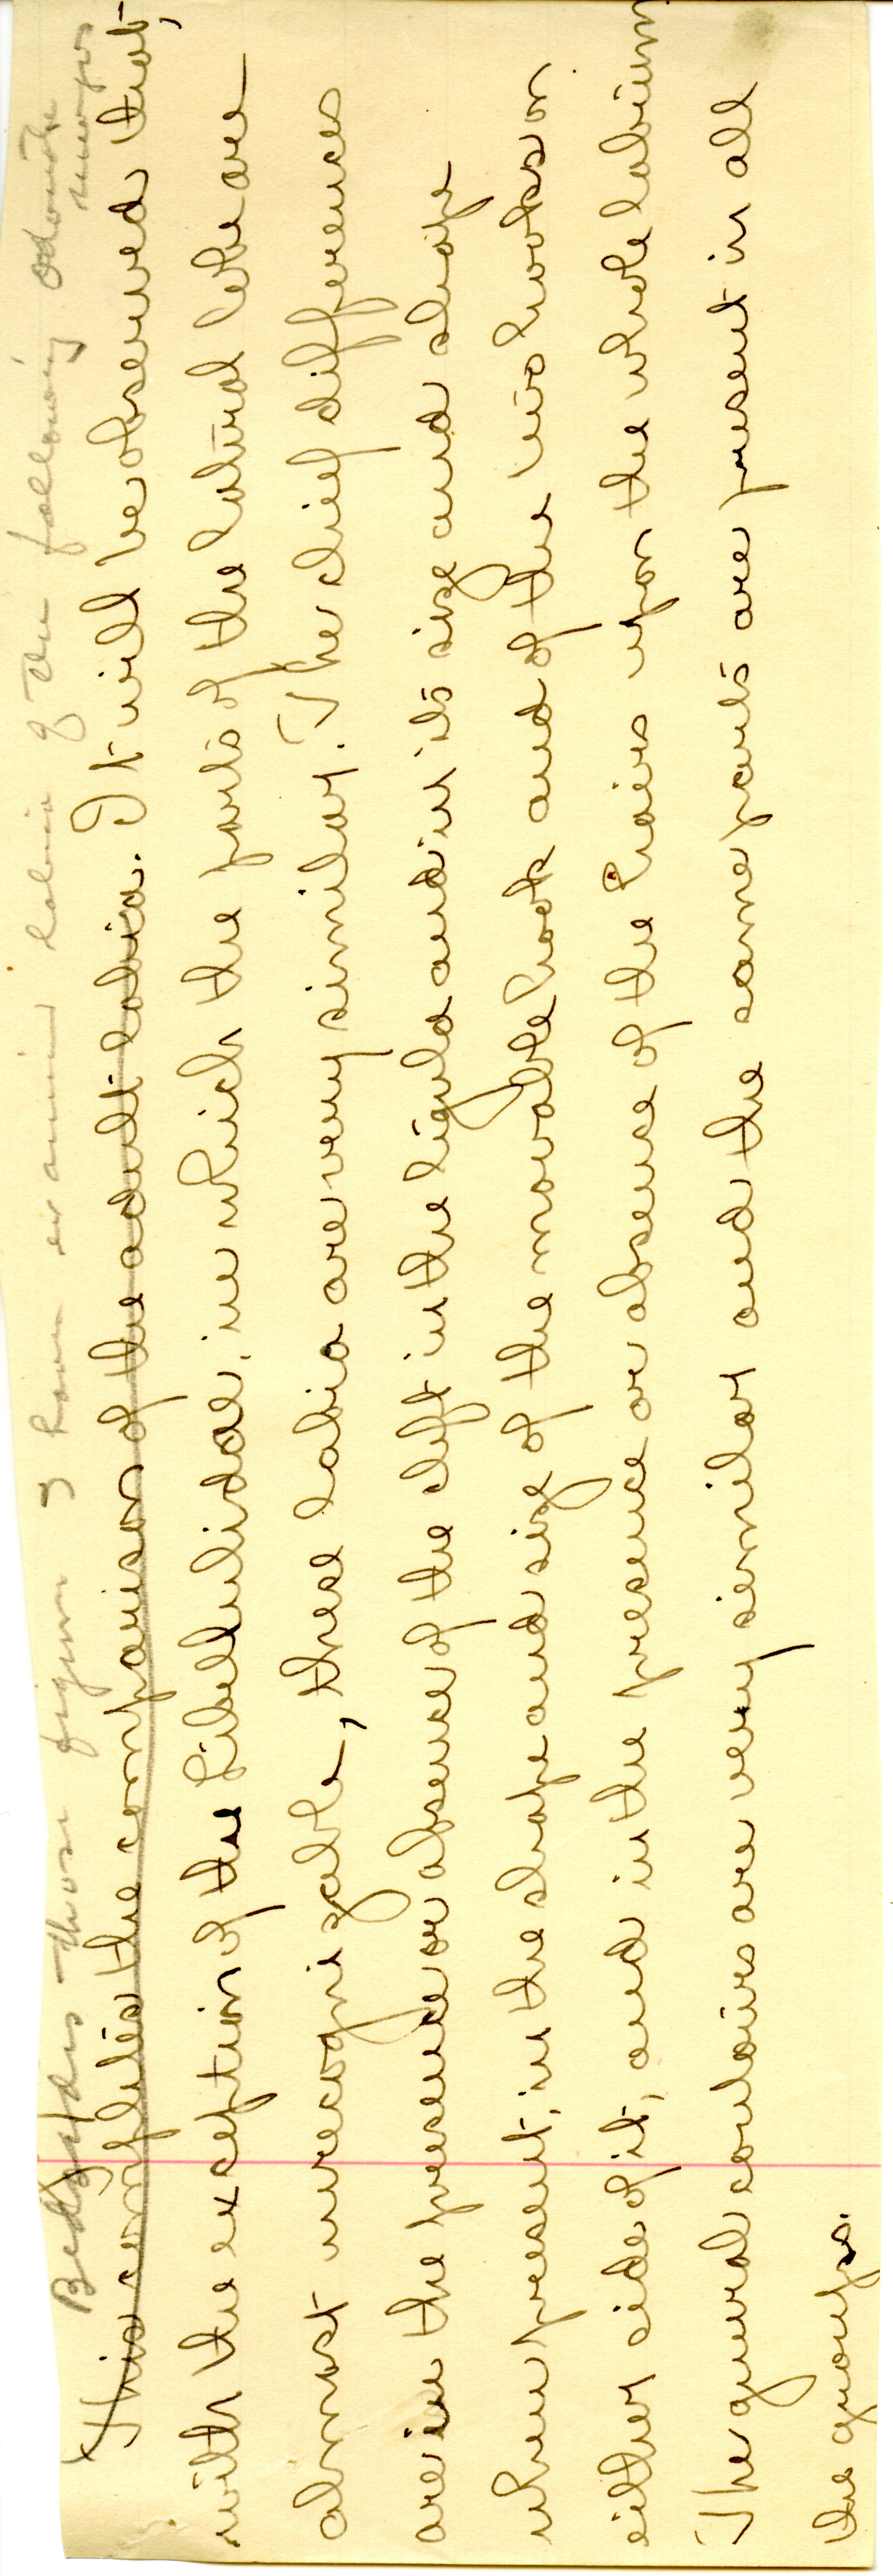 Besides those figures I have examined labia of the following odonata
nymphs
This completes the comparison of the adult labia. It will be observed that,
with the exception of the Libellulidae, in which the parts of the lateral lobe are
almost unrecognizable, these labia are very similar. The chief differences
are in the presence or absence of the cleft in the ligula and in its size and shape
when present, in the shape and size of the movable hook and of the two hooks on
either side of it, and in the presence or absence of the hairs upon the whole labium
The general contours are very similar and the same parts are present in all
the groups.